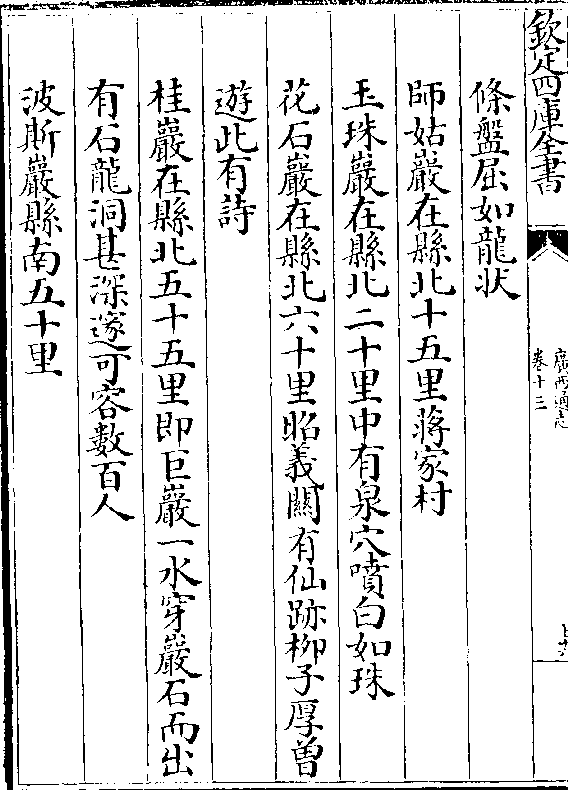 欽定四庫全書
廣西通志
卷十三
條盤屈如龍狀
師姑巖在縣北十五里蔣家村
玉珠巖在縣北二十里中有泉穴噴白如珠
花石巖在縣北六十里昭義關有仙跡柳子厚曽
遊此有詩
桂巖在縣北五十五里即巨巖一水穿巖石而出
有石龍洞甚深邃可容數百人
波斯巖縣南五十里